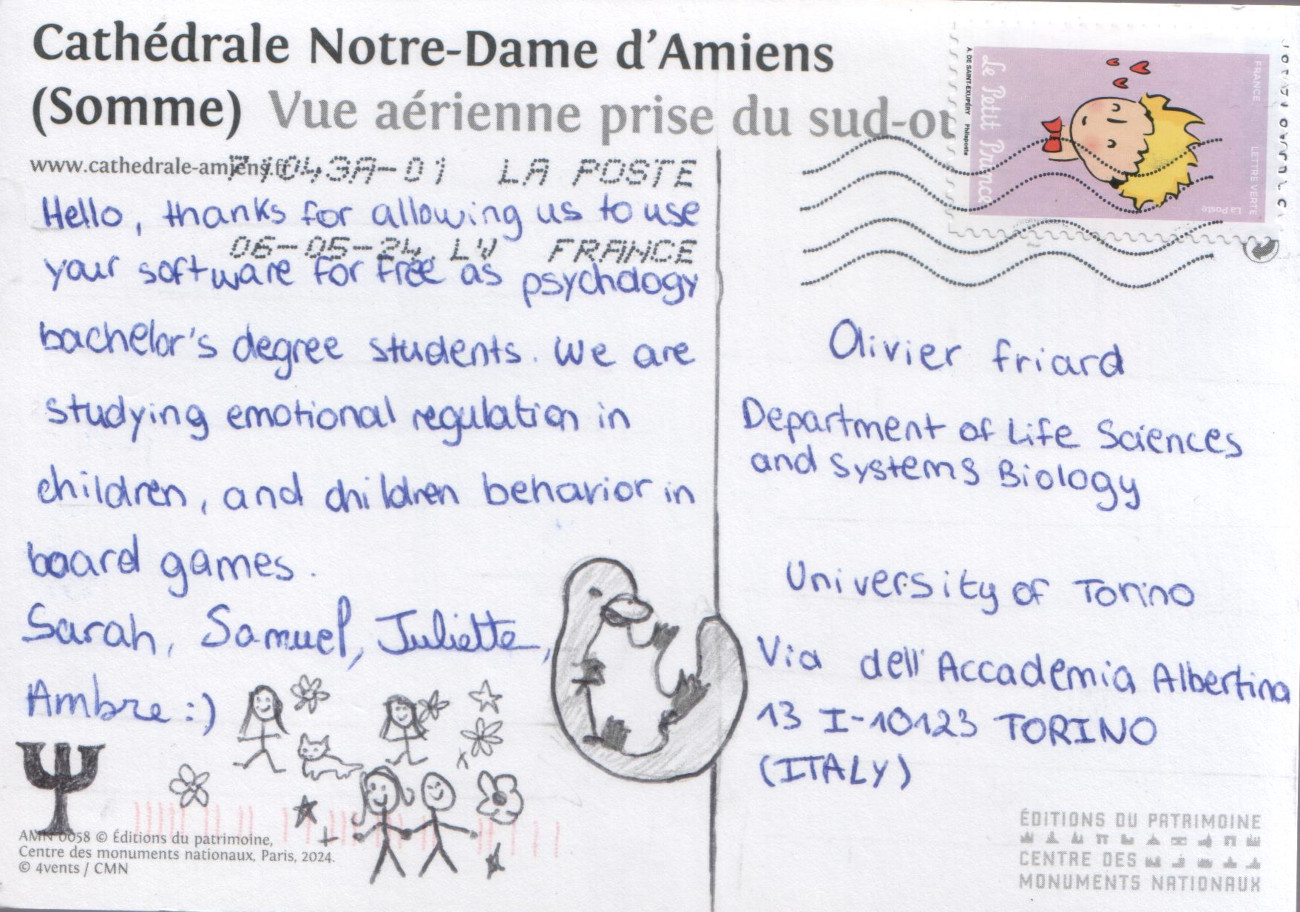 Cathédrale Notre-Dame d'Amiens
(Somme) Vue aérienne prise du sud-ou
www.cathedrale-amiens.fr
043A-01 LA POSTE
Hello, thanks for allowing us to use
06-05-24 LV FRANCE
your software for free as psychology
bachelor's degree students. We are
studying emotional regulation in
children, and children behavior in
board games.
Sarah, Samuel, Juliette,
Ambre :)
Ψ
AMN 0058 © Éditions du patrimoine,
Centre des monuments nationaux, Paris, 2024.
© 4vents / CMN
Le Petit Prince
A DE SAINT-EXUPÉRY Philaposte
FRANCE
LETTRE VERTE
La Poste
Olivier Friard
Department of Life Sciences
and Systems Biology
University of Torino
Via dell'Accademia Albertina
13 I-10123 TORINO
(ITALY)
ÉDITIONS DU PATRIMOINE
CENTRE DES
MONUMENTS NATIONAUX